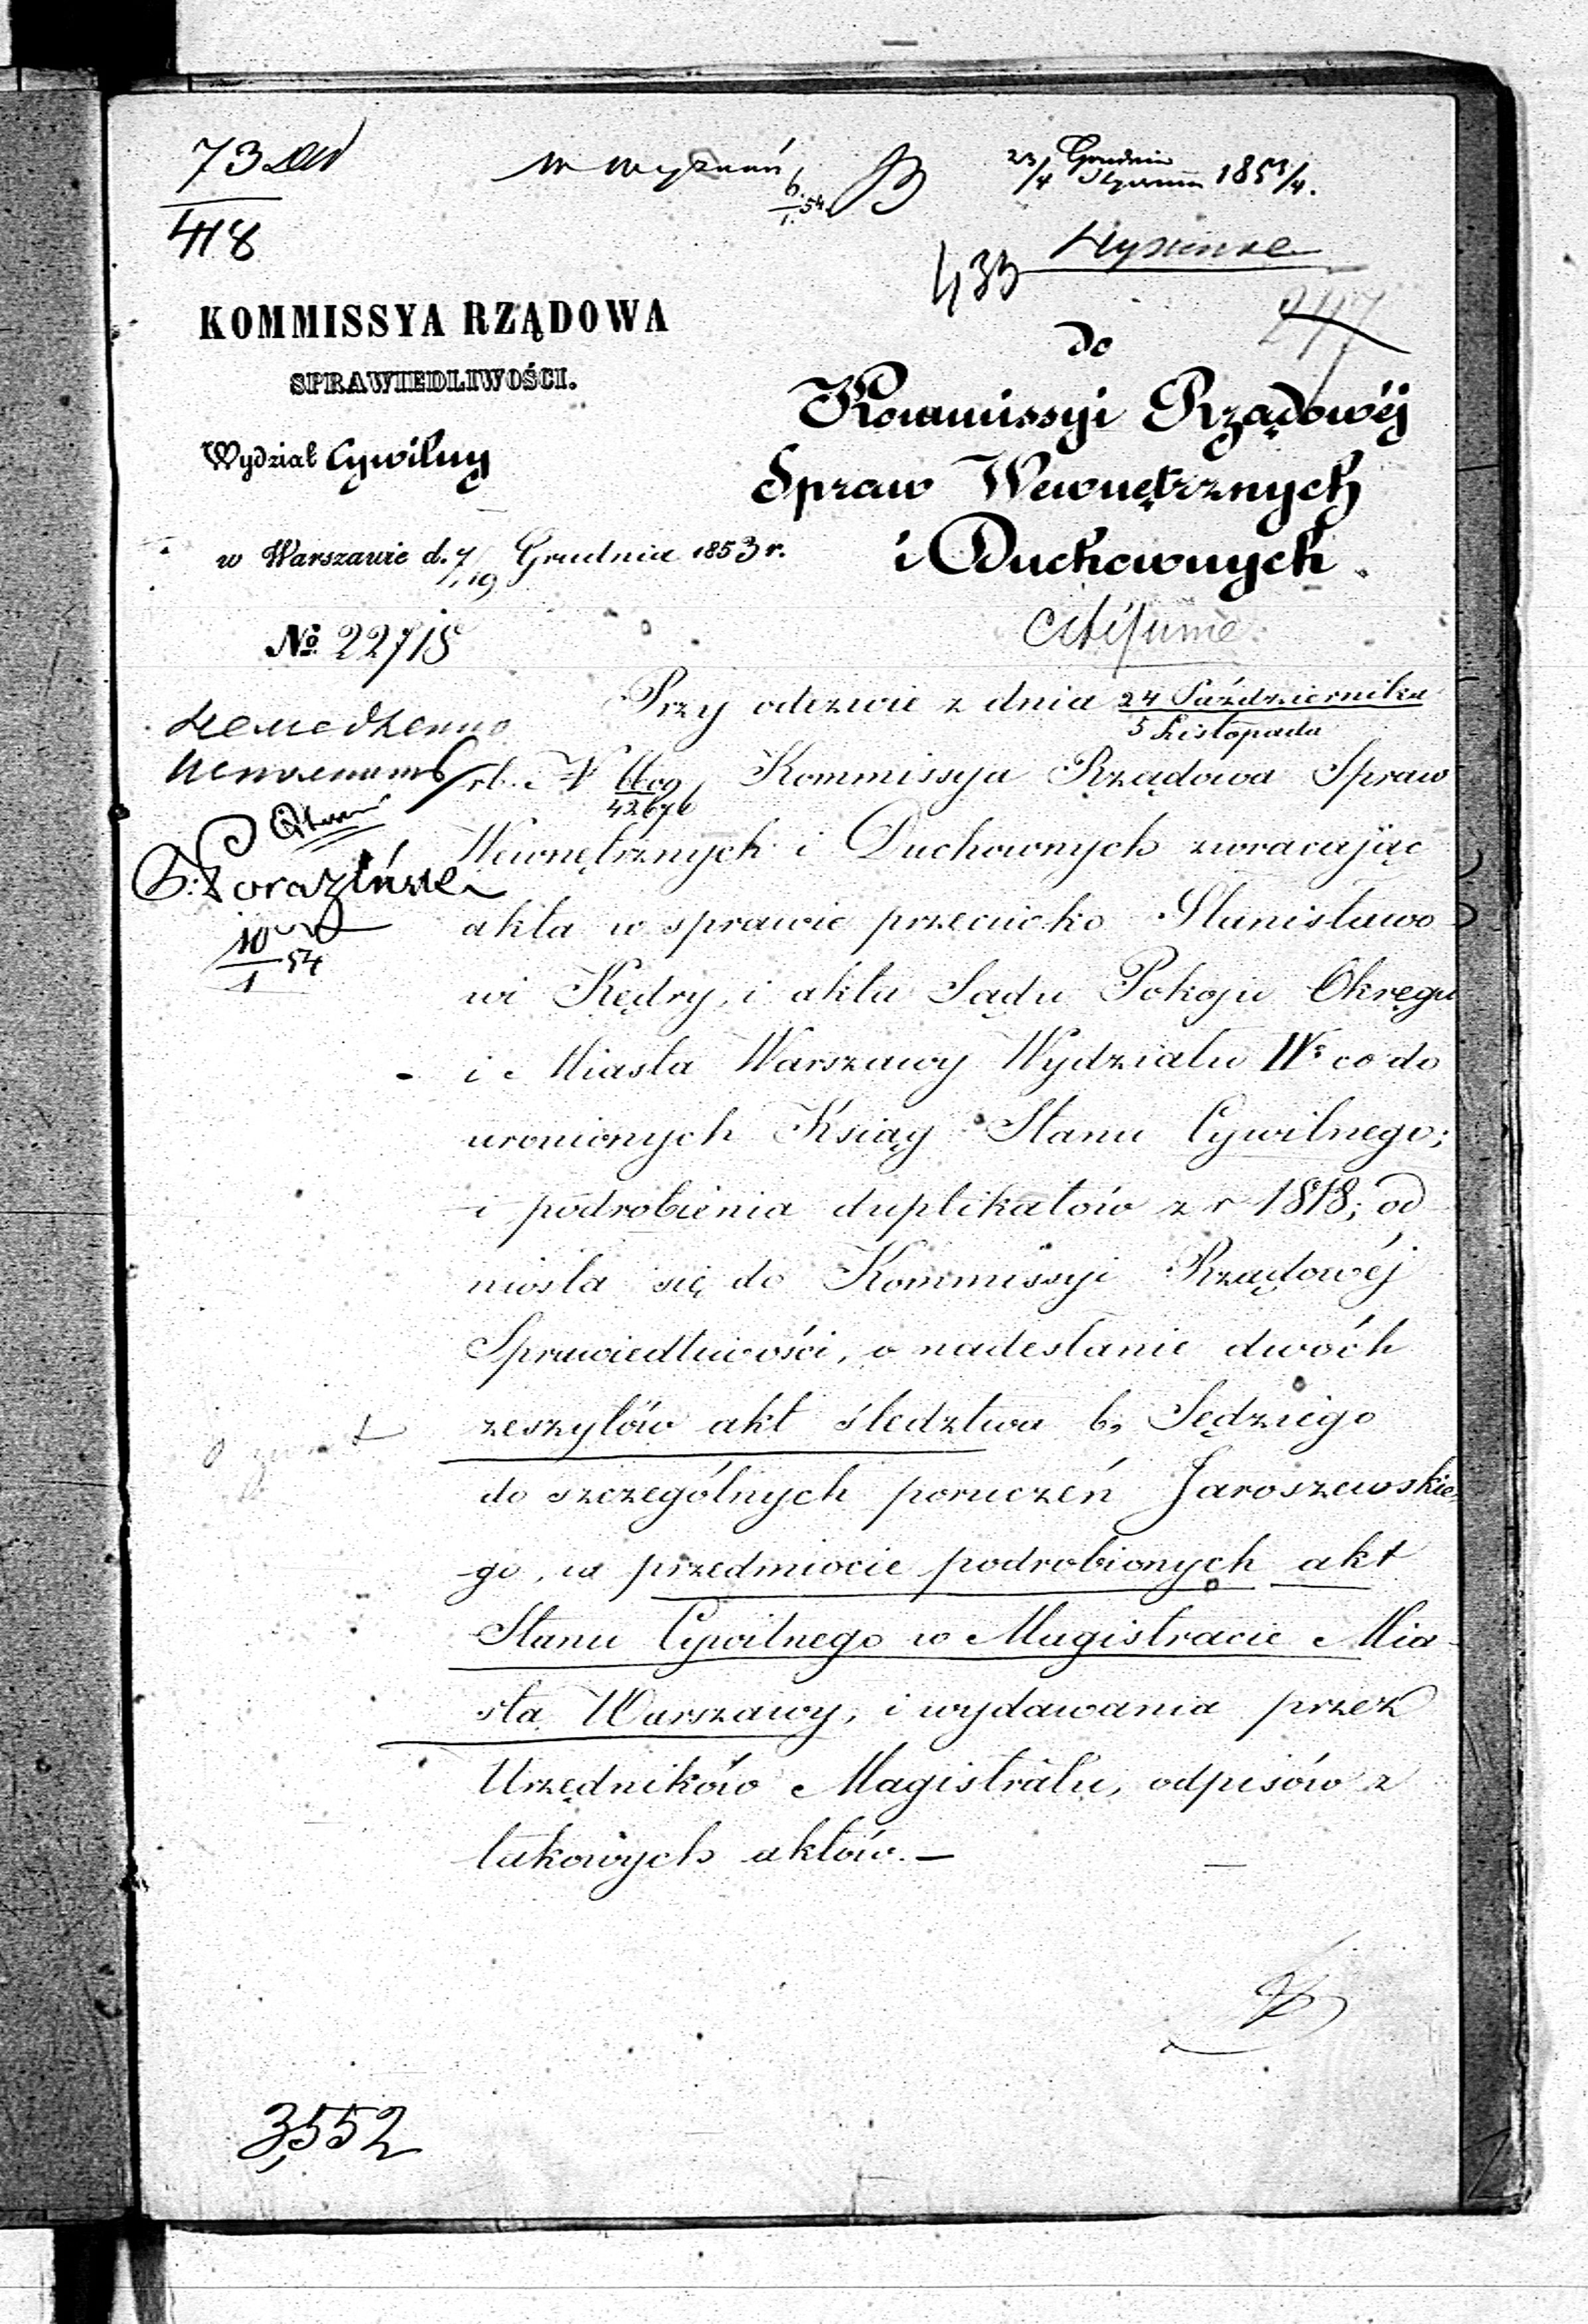 73
418
w wyznań
6/1 54.
23/4 Grudnia Stycznia 1853/4.
433
247
KOMMISSYA RZĄDOWA
SPRAWIEDLIWOŚCI.
Wydział Cywilny
w Warszawie d. 7/19 Grudnia 1853 r.
№ 22718
do
Kommissyi Rządowéj
Spraw Wewnętrznych
i Duchownych
citissime
немедленно
исполнить
10/1 54
Przy odezwie z dnia 24 Października / 5 Listopada
rb. N 6609/42676 Kommissya Rządowa Spraw
Wewnętrznych i Duchownych zwracając
akta w sprawie przeciwko Stanisławo
wi Kędry, i akta Sądu Pokoju Okręgu
i Miasta Warszawy Wydziału IVº co do
uronionych Ksiąg Stanu Cywilnego;
i podrobienia duplikatów z r 1818; od
niosła się do Kommissyi Rządowéj
Sprawiedliwości, o nadesłanie dwóch
zeszytów akt śledztwa b. Sędziego
do szczególnych poruczeń Jaroszewskie
go, w przedmiocie podrobionych akt
Stanu Cywilnego w Magistracie Mia-
sta Warszawy, i wydawania przez
Urzędników Magistratu, odpisów z
takowych aktów. —
3,552